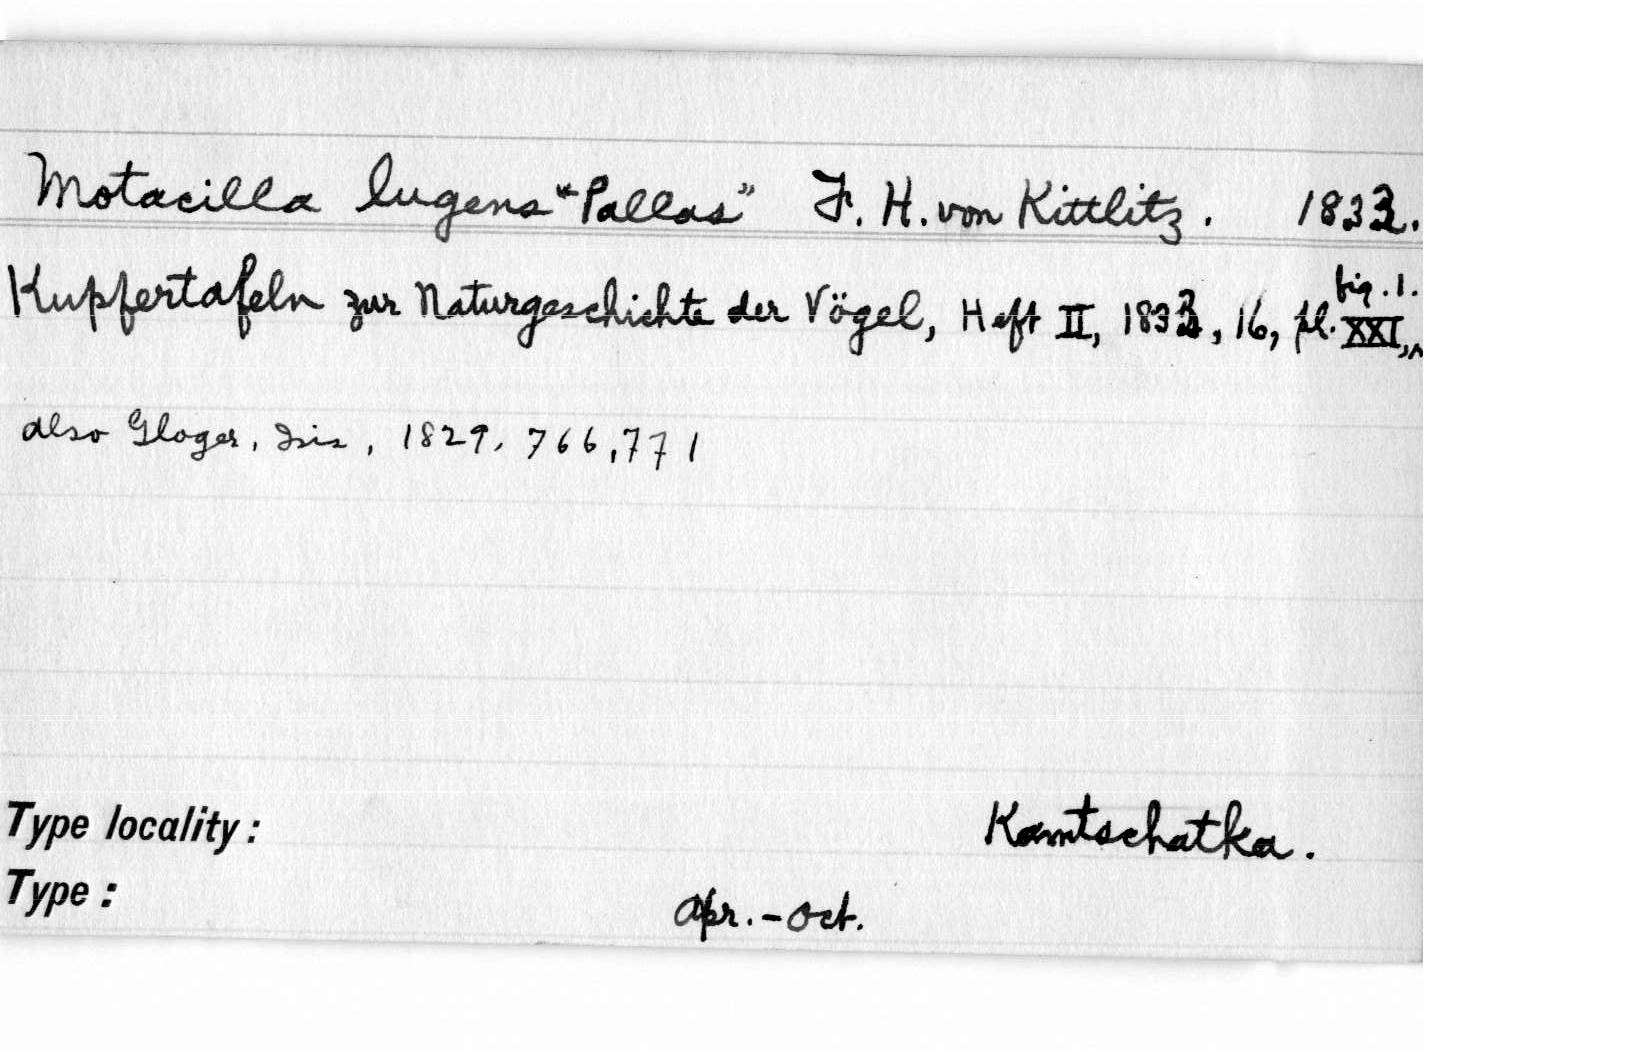 Motacilla lugens "Pallas" F. H. von Kittlitz. 1833.
Kupfertafeln zur Naturgeschichte der Vögel, Heft II, 1833, 16, pl. XXI, fig. 1.
also Gloger, Isis, 1829, 766, 771
Type locality: Kamtschatka.
Type: Apr. - Oct.